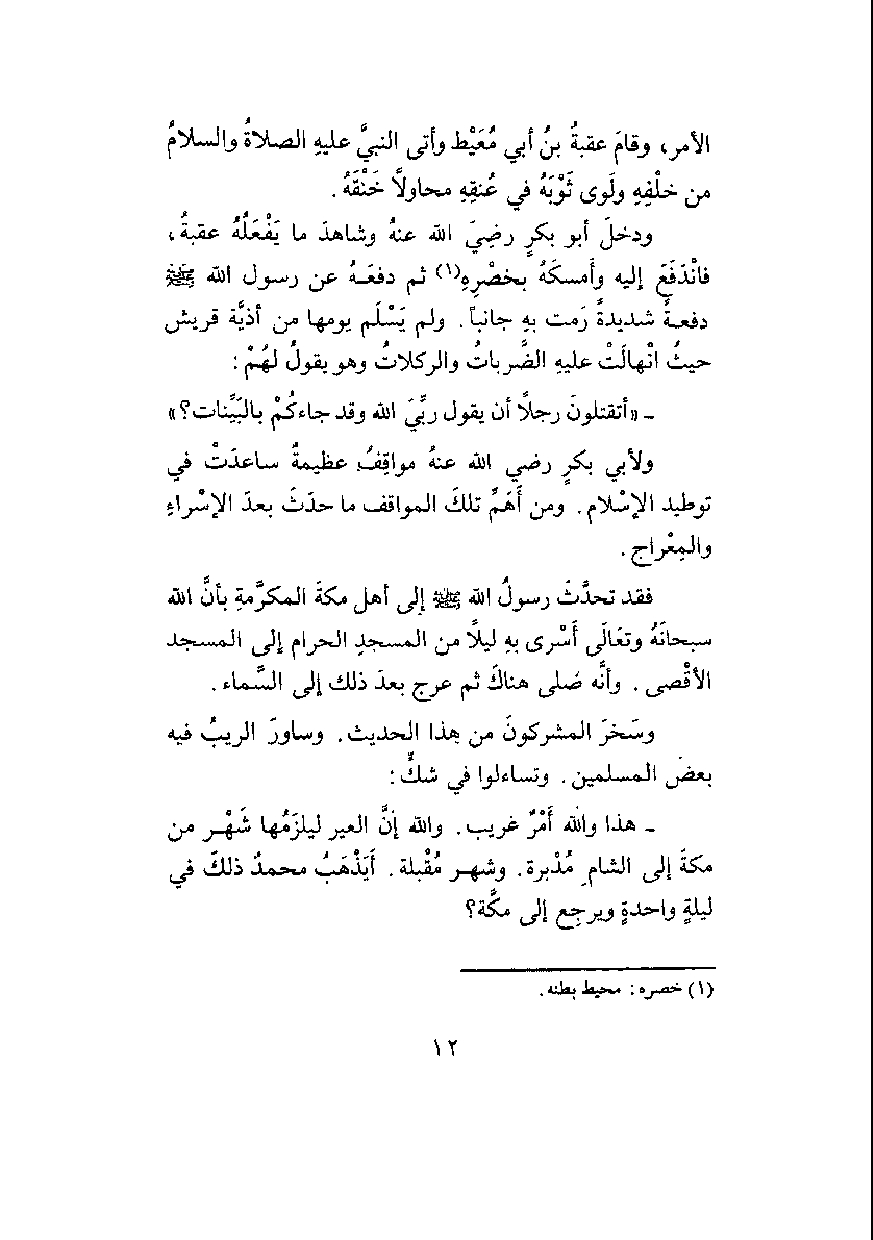 الأمر، وقامَ عقبةُ بنُ أبي مُعَيْط وأتى النبيَّ عليهِ الصلاةُ والسلامُ
من خلْفِهِ ولَوى ثَوْبَهُ في عُنقِهِ محاولاً خَنْقَهُ .
ودخلَ أبو بكرٍ رضِيَ الله عنهُ وشاهدَ ما يَفْعَلُهُ عقبةُ،
فانْدَفَعَ إليه وأمسكَهُ بخصْرِهِ(١) ثم دفعَـهُ عن رسول الله ﷺ
دفعـةً شديدةً رَمت بهِ جانباً . ولم يَسْلَم يومها من أذيَّة قريش
حيثُ انْهالَتْ عليهِ الضَّرباتُ والركلاتُ وهو يقولُ لهُمْ :
ـ «أتقتلونَ رجلاً أن يقول ربِّيَ الله وقد جاءكُمْ بالبَيِّنات؟»
ولأبي بكرٍ رضي الله عنهُ مواقِفُ عظيمةُ ساعدَتْ في
توطيد الإسْلام . ومن أهَمِّ تلكَ المواقف ما حدَثَ بعدَ الإسْراءِ
والمِعْراج .
فقد تحدَّثَ رسولُ الله ﷺ إلى أهل مكةَ المكرَّمةِ بأنَّ الله
سبحانَهُ وتعَالَى أسْرى بهِ ليلاً من المسجدِ الحرام إلى المسجد
الأقْصى . وأنَّه صَلى هناكَ ثم عرج بعدَ ذلك إلى السَّماء .
وسَخرَ المشركونَ من هذا الحديث . وساورَ الريبُ فيه
بعضَ المسلمين . وتساءلوا في شكٍّ :
ـ هذا والله أمْرٌ غريب . والله إنَّ العير ليلزَمُها شَهْـر من
مكةَ إلى الشام مُدْبرة . وشهـر مُقْبلة . أيَذْهَبُ محمدُ ذلكَ في
ليلةٍ واحدةٍ ويرجِع إلى مكَّة؟
(١) خصره : محيط بطنه .
١٢